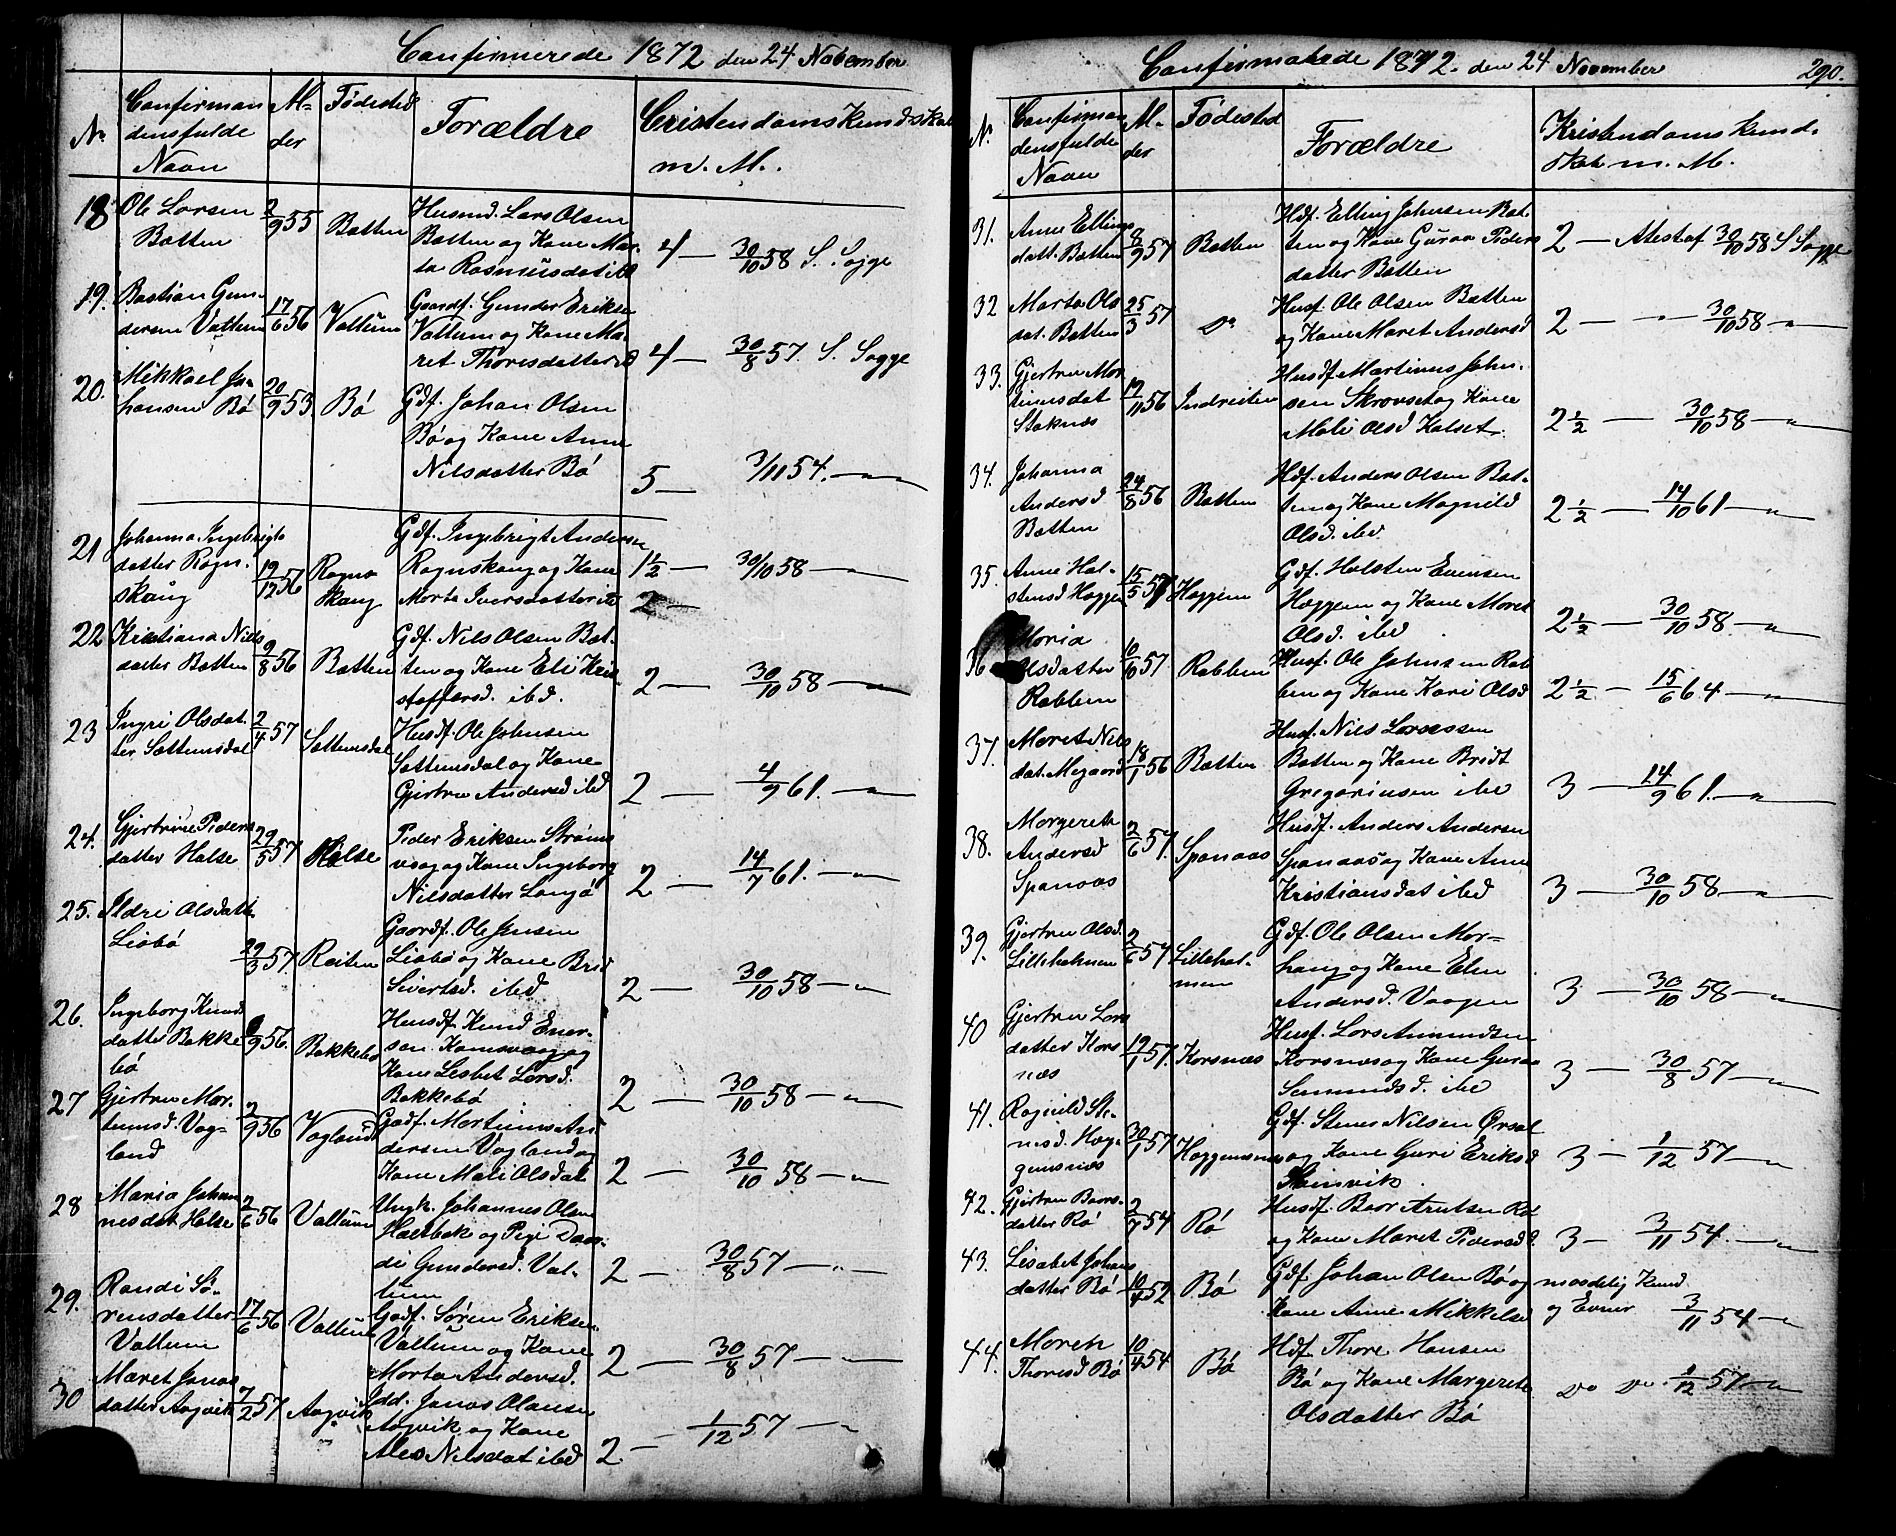 Confirmerede 1872 den 24 November
N. Confirman densfulde Navn
M. der
Fødested
Forældre
Cristendomskundskab m. M.
18 Ole Larsen Batten
2/9 55
Batten
Husmd. Lars Olsen
Batten og Kone Mar-
ta Rasmusdatt ibd
4 — 30/10 58 S. Sogge
19. Bastian Gun-
dersen Vattum
17/6 56
Vattum
Gaardf. Gunder Eriksen
Vattum og Kone Ma-
ret Thoresdatter ibd
4 — 30/8 57. S. Sogge
20. Mikkael Jo-
hansen Bø
20/9 53
Bø
Gdf. Johan Olsen
Bø og Kone Anne
Nilsdatter Bø
5 — 3/11 54. — "
21 Johanna Ingebrigts
datter Rogn-
skaug
19/12 56
Rogn
skaug
Gdf. Ingebrigt Andersen
Rognskaug og Kone
Marta Iversdatter ib
1½ — 30/10 58 — "
2 —
22 Kristiana Nils
datter Batten
9/8 56
Batten
Gdf. Nils Olsen Bat-
ten og Kone Eli Kri-
stoffersd. ibd.
2 — 30/10 58 — "
23 Ingri Olsdat-
ter Sættemsdal
2/4 57
Sættemsdal
Husf. Ole Johnsen
Sættemsdal og Kone
Gjertru Andersd ibd
2 — 4/9 61. — "
24. Gjertrine Peders
datter Halse
29/5 57
Halse
Peder Eriksen Strøms
vaag og Kone Ingeborg
Nilsdatter Langø
2 — 14/7 61. — "
25. Ildri Olsdatt.
Liabø
22/3 57
Reiten
Gaardf. Ole Jensen
Liabø og Kone Brit
Sivertsd. ibd
2 — 30/10 58 — "
26. Ingeborg Knud
datter Bakke
bø
8/9 56.
Bakkebø
Husdf. Knud Ener-
sen Kornsvaag og
Kone Lesbet Larsd.
Bakkebø
2 — 30/10 58 — "
27 Gjertru Mar-
tinusd. Vag-
land
2/9 56
Vagland
Gadf. Martinus An
dersen Vagland og
Kone Mali Olsdat
2 — 30/10 58 — "
28 Maria Johan
nesdat Halse
2/6 56
Vattum
Ungk. Johannes Olsen
Holtbak og Pige Dor-
di Gundersd. Vat-
tum
2 — 30/8 57 — "
29. Randi Sø-
rensdatter
Vattum
17/6 56
Vattum
Gadf. Søren Eriksen
Vattum og Kone
Marta Andersd.
2 — 30/8 57 — "
30 Maret Jonas
datter Aagvik
7/2 57
Aagvik
Idd. Jonas Olausen
Aagvik og Kone
Nilsdat ibd
2 — 1/12 57 — "
Confirmerede 1872. den 24 November
290.
N. Confirman densfulde Navn
M. der
Fødested
Forældre
Kristendomskund-
skab m. M.
31. Anne Ellings
datt. Batten
8/9 57
Batten
Hdf. Elling Johnsen Bat-
ten og Kone Guraa Peders
datter Batten
2 — Attest af 30/10 58 S Sogge
32 Marta Ols
dat. Batten
25/3 57
Do
Husf. Ole Olsen Batten
og Kone Maret Andersd
2 — " — 30/10 58 — "
33. Gjertru Mar
tinusdat
Stoknæs
19/11 56
Indreiten
Husdf Martinus John-
sen Skrovset og Kone
Mali Olsd Kalset.
2½ — 30/10 58 — "
34. Johanna
Andersd
Batten
24/8 56
Batten
Hdf. Anders Olsen Bat-
ten og Kone Magnild
Olsd. ibd
2½ — 14/10 61 — "
35. Anne Hal-
stensd Haggem
15/5 57
Haggem
Gdf. Halsten Evensen
Haggem og Kone Maret
Olsd. ibd
2½ — 30/10 58. — "
36 Maria
Olsdatter
Rabben
6/6 57
Rabben
Husf. Ole Johnsen Rab
ben og Kone Kari Olsd
2½ — 15/6 64 — "
37. Maret Nils
dat. Megaard
18/1 56
Batten
Husf. Nils Larsessen
Batten og Kone Bridt
Gregoriusen ibd
3 — 14/9 61. — "
38. Margereth
Andersd
Spanaas
2/6 57.
Spanaas
Husdf. Anders Andersen
Spanaas og Kone Anne
Kristiansdat ibd
3 — 30/10 58 — "
39. Gjertru Olsd.
Lilleholmen
2/6 57
Lillehol-
men
Gdf. Ole Olsen Mor-
haug og Kone Elen
Andersd. Vaagen
3 — 30/10 58 — "
40 Gjertru Lars
datter Kors
næs
19/1 57.
Korsnæs
Husf. Lars Amundsen
Korsnæs og Kone Guraa
Semundsd. ibd
3 — 30/8 57 — "
41. Ragnild Ste-
nesd. Hag-
gemsnæs
30/1 57
Haggemsnæs
Gdf. Stener Nilsen Ørsal
og Kone Guri Eriksd
Steinvik.
3 — 1/12 57 — "
42. Gjertru Baars-
datter Rø
2/7 54
Rø
Husdf. Baar Arntsen Rø
og Kone Maret Pedersd.
3 — 3/11 54. — "
43. Lisabet Johans
datter Bø
10/4 52
Bø
Gdf. Johan Olsen Bø og
Kone Anne Mikkelsd
maadelig Kund
og Evner 3/11 54 — "
44. Mareth
Thoresd Bø
10/4 54
Bø
Hdf. Thore Hansen
Bø og Kone Margrete
Olsdatter Bø
Do Do. 1/12 57. — "